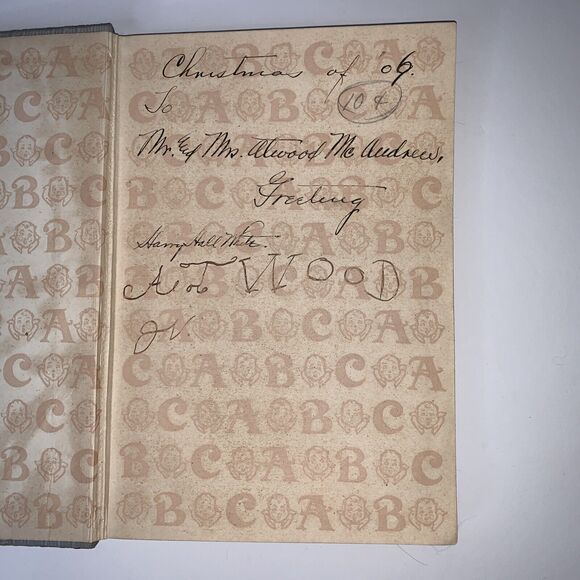 Christmas of '09.
To
10¢
Mr. & Mrs. Atwood McAndrew,
Greeting
Harry Hall White.
WOOD
JV.